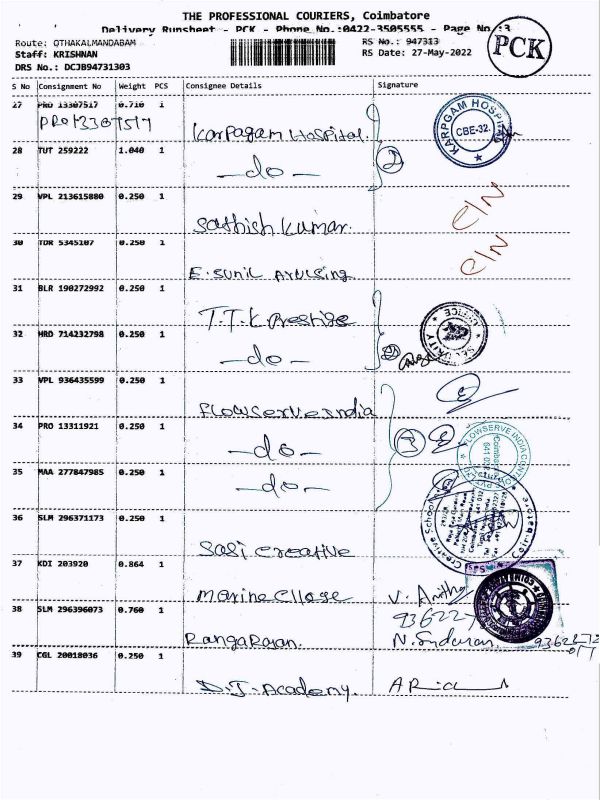 THE PROFESSIONAL COURIERS, Coimbatore
Delivery Runsheet - PCK - Phone No.:0422-3505555 - Page No.:3
Route: OTHAKALMANDABAM
RS No.: 947313
PCK
Staff: KRISHNAN
RS Date: 27-May-2022
DRS No.: DCJB94731303
S No Consignment No Weight PCS Consignee Details Signature
27 PRO 13307517 0.710 1
PRO13307517
Karpagam Hospital.
KARPGAM HOSPITAL CBE-32.
28 TUT 259222 1.040 1
-do-
2
29 VPL 213615880 0.250 1
Sathish Kumar.
C/N
30 TDR 5345107 0.250 1
E. Sunil
C/N
31 BLR 190272992 0.250 1
T.T.K Prestige
SECURITY OFFICE
32 HRD 714232798 0.250 1
-do-
2
33 VPL 936435599 0.250 1
Flowserve India
34 PRO 13311921 0.250 1
-do-
3
FLOWSERVE INDIA CONT
Coimbatore
641 032
35 MAA 277847985 0.250 1
-do-
36 SLM 296371173 0.250 1
Sasi Creative
Creative School
Coimbatore
37 KDI 203920 0.864 1
Marine Cllage
V. Anitha
93622
38 SLM 296396073 0.760 1
Rangarajan.
N. Sudaran
39 CGL 20018036 0.250 1
D.J. Academy.